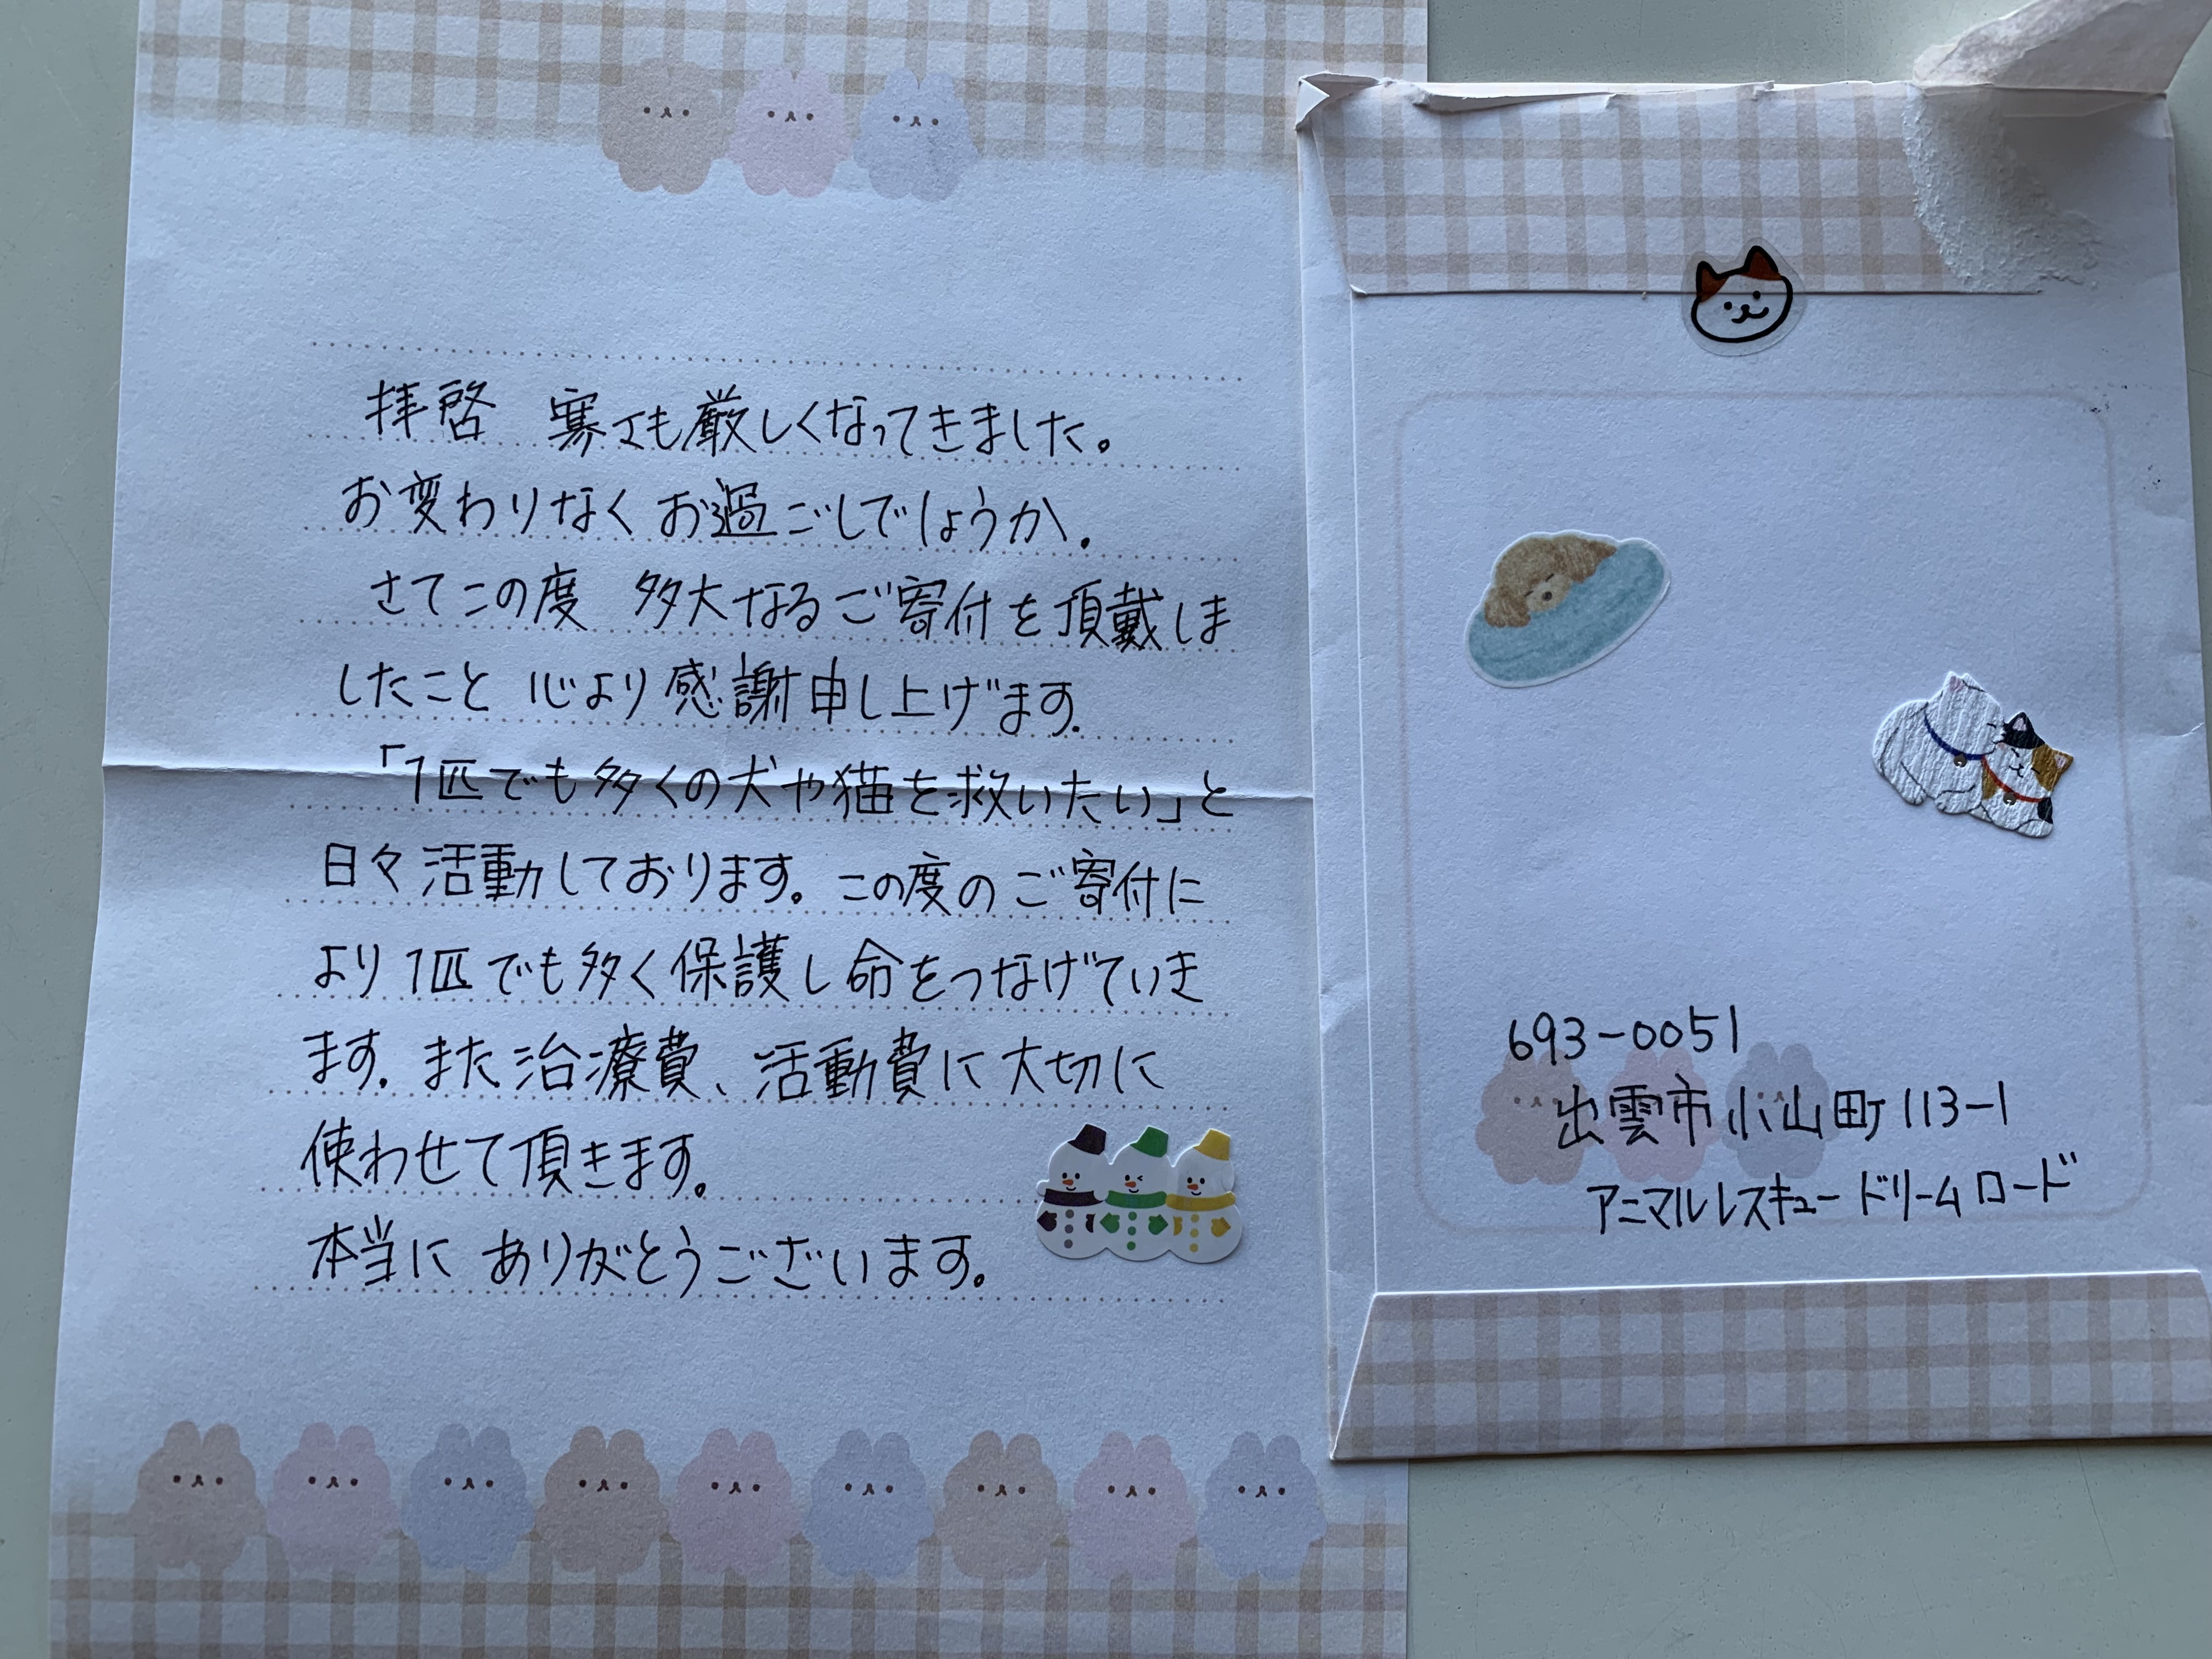 拝啓 寒さも厳しくなってきました。
お変わりなくお過ごしでしょうか。
さてこの度 多大なるご寄付を頂戴しま
したこと 心より感謝申し上げます。
「1匹でも多くの犬や猫を救いたい」と
日々活動しております。この度のご寄付に
より1匹でも多く保護し命をつなげていき
ます。また治療費、活動費に大切に
使わせて頂きます。
本当に ありがとうございます。
693-0051
出雲市小山町113-1
アニマルレスキュードリームロード